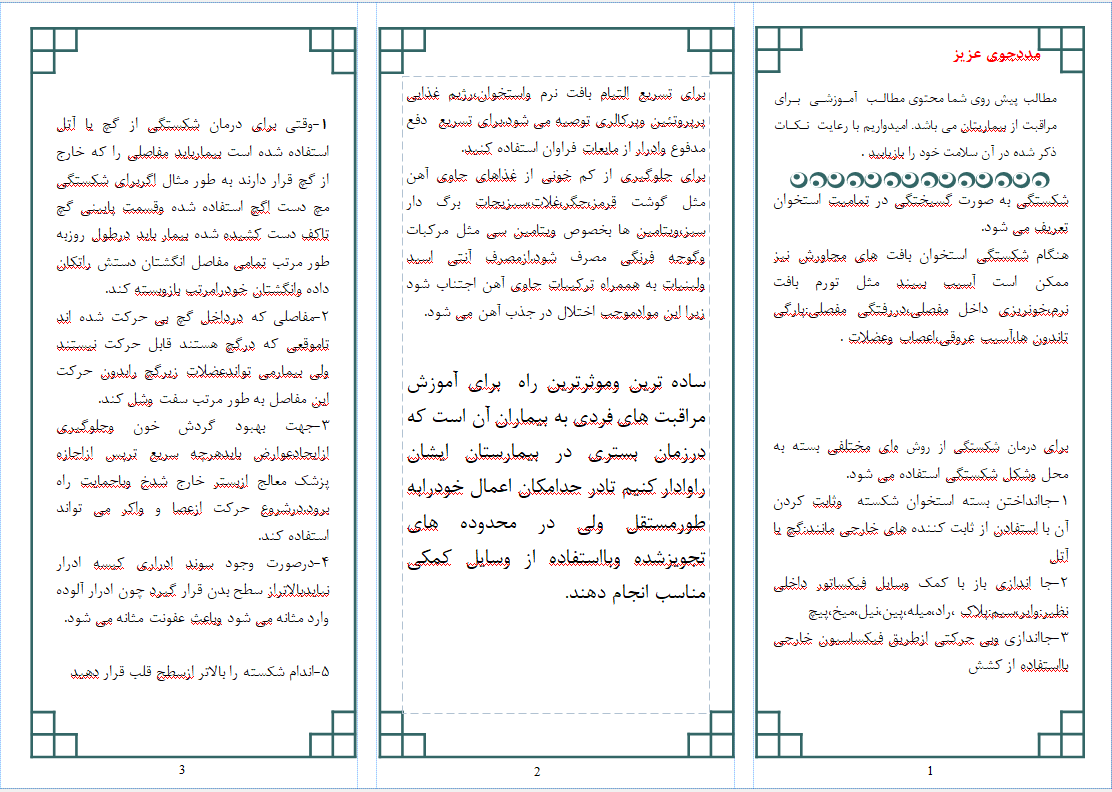 مددجوی عزیز
مطالب پیش روی شما محتوی مطالب آموزشی برای
مراقبت از بیماریتان می باشد. امیدواریم با رعایت نکات
ذکر شده در آن سلامت خود را بازیابید .
شکستگی به صورت گسیختگی در تمامیت استخوان
تعریف می شود.
هنگام شکستگی استخوان بافت های مجاورش نیز
ممکن است آسیب ببیند مثل تورم بافت
نرم،خونریزی داخل مفصلی،دررفتگی مفصلی،پارگی
تاندون ها،آسیب عروقی،اعصاب وعضلات .
برای درمان شکستگی از روش های مختلفی بسته به
محل وشکل شکستگی استفاده می شود.
۱-جاانداختن بسته استخوان شکسته وثابت کردن
آن با استفادن از ثابت کننده های خارجی مانند:گچ یا
آتل
۲-جا اندازی باز با کمک وسایل فیکساتور داخلی
نظیر:وایر،سیم،پلاک ،راد،میله،پین،نیل،میخ،پیچ
۳-جااندازی وبی حرکتی ازطریق فیکساسیون خارجی
بااستفاده از کشش
1
برای تسریع التیام بافت نرم واستخوان،رژیم غذایی
پرپروتئین وپرکالری توصیه می شود.برای تسریع دفع
مدفوع وادرار از مایعات فراوان استفاده کنید.
برای جلوگیری از کم خونی از غذاهای حاوی آهن
مثل گوشت قرمز،جگر،غلات،سبزیجات برگ دار
سبز،ویتامین ها بخصوص ویتامین سی مثل مرکبات
وگوجه فرنگی مصرف شود.ازمصرف آنتی اسید
ولبنیات به هممراه ترکیبات حاوی آهن اجتناب شود
زیرا این موادموجب اختلال در جذب آهن می شود.
ساده ترین وموثرترین راه برای آموزش
مراقبت های فردی به بیماران آن است که
درزمان بستری در بیمارستان ایشان
راوادار کنیم تادر حدامکان اعمال خودرابه
طورمستقل ولی در محدوده های
تجویزشده وبااستفاده از وسایل کمکی
مناسب انجام دهند.
2
۱-وقتی برای درمان شکستگی از گچ یا آتل
استفاده شده است بیمارباید مفاصلی را که خارج
از گچ قرار دارند به طور مثال اگربرای شکستگی
مچ دست اگچ استفاده شده وقسمت پایینی گچ
تاکف دست کشیده شده بیمار باید درطول روزبه
طور مرتب تمامی مفاصل انگشتان دستش راتکان
داده وانگشتان خودرامرتب بازوبسته کند.
۲-مفاصلی که درداخل گچ بی حرکت شده اند
تاموقعی که درگچ هستند قابل حرکت نیستند
ولی بیمارمی تواندعضلات زیرگچ رابدون حرکت
این مفاصل به طور مرتب سفت وشل کند.
۳-جهت بهبود گردش خون وجلوگیری
ازایجادعوارض بایدهرچه سریع تربس ازاجازه
پزشک معالج ازبستر خارج شدخ وباحمایت راه
برود.درشروع حرکت ازعصا و واکر می تواند
استفاده کند.
۴-درصورت وجود سوند ادراری کیسه ادرار
نبایدبالاتراز سطح بدن قرار گیرد چون ادرار آلوده
وارد مثانه می شود وباعث عفونت مثانه می شود.
۵-اندام شکسته را بالاتر ازسطح قلب قرار دهید
3